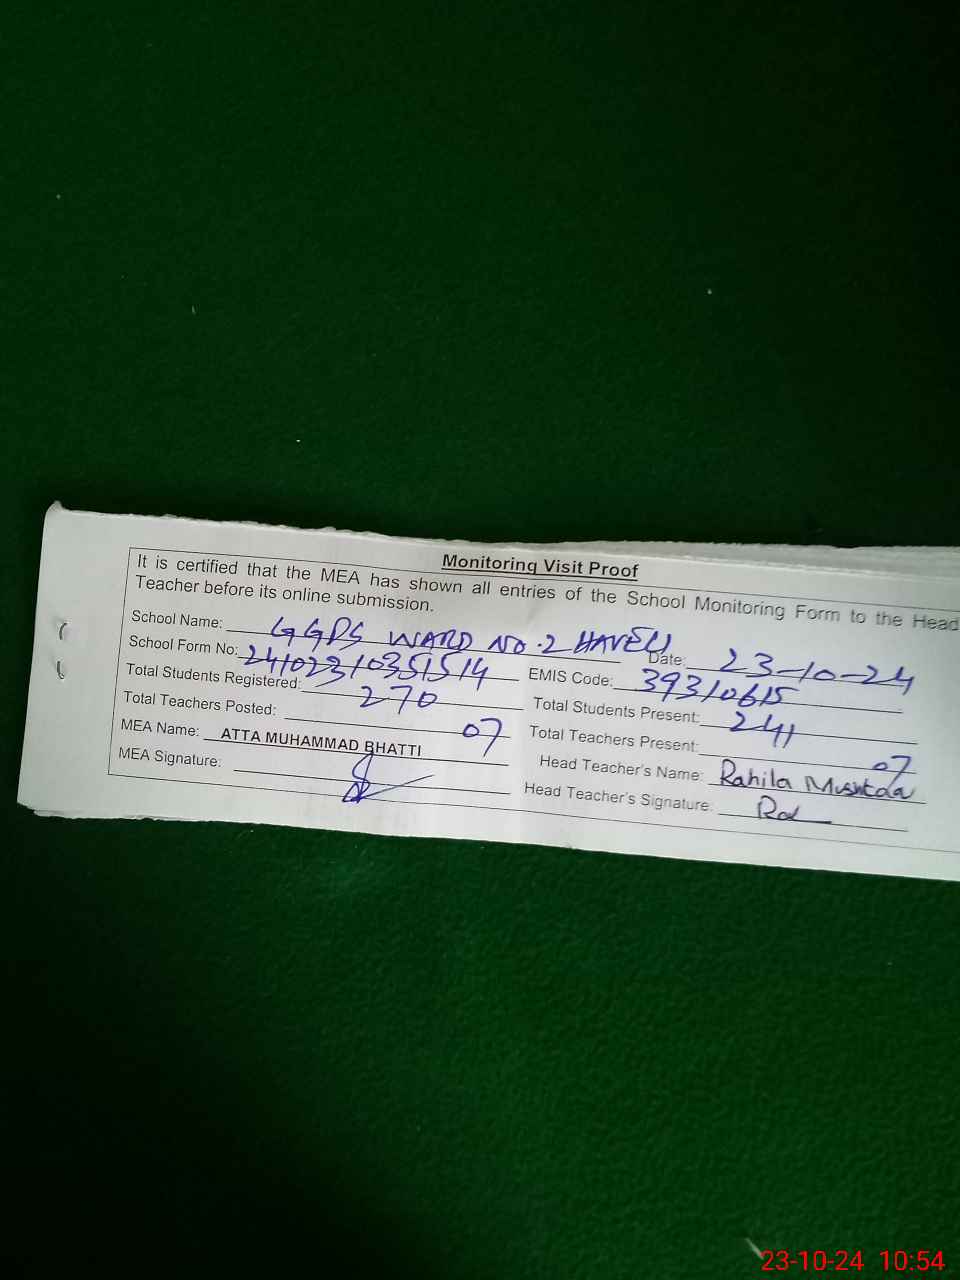 Monitoring Visit Proof
It is certified that the MEA has shown all entries of the School Monitoring Form to the Head
Teacher before its online submission.
School Name: GGPS WARD NO.2 HAVELI Date: 23-10-24
School Form No: 24102310351514 EMIS Code: 39310615
Total Students Registered: 270 Total Students Present: 241
Total Teachers Posted: 07 Total Teachers Present: 07
MEA Name: ATTA MUHAMMAD BHATTI Head Teacher's Name: Rahila Mushtaq
MEA Signature: Head Teacher's Signature.
23-10-24 10:54